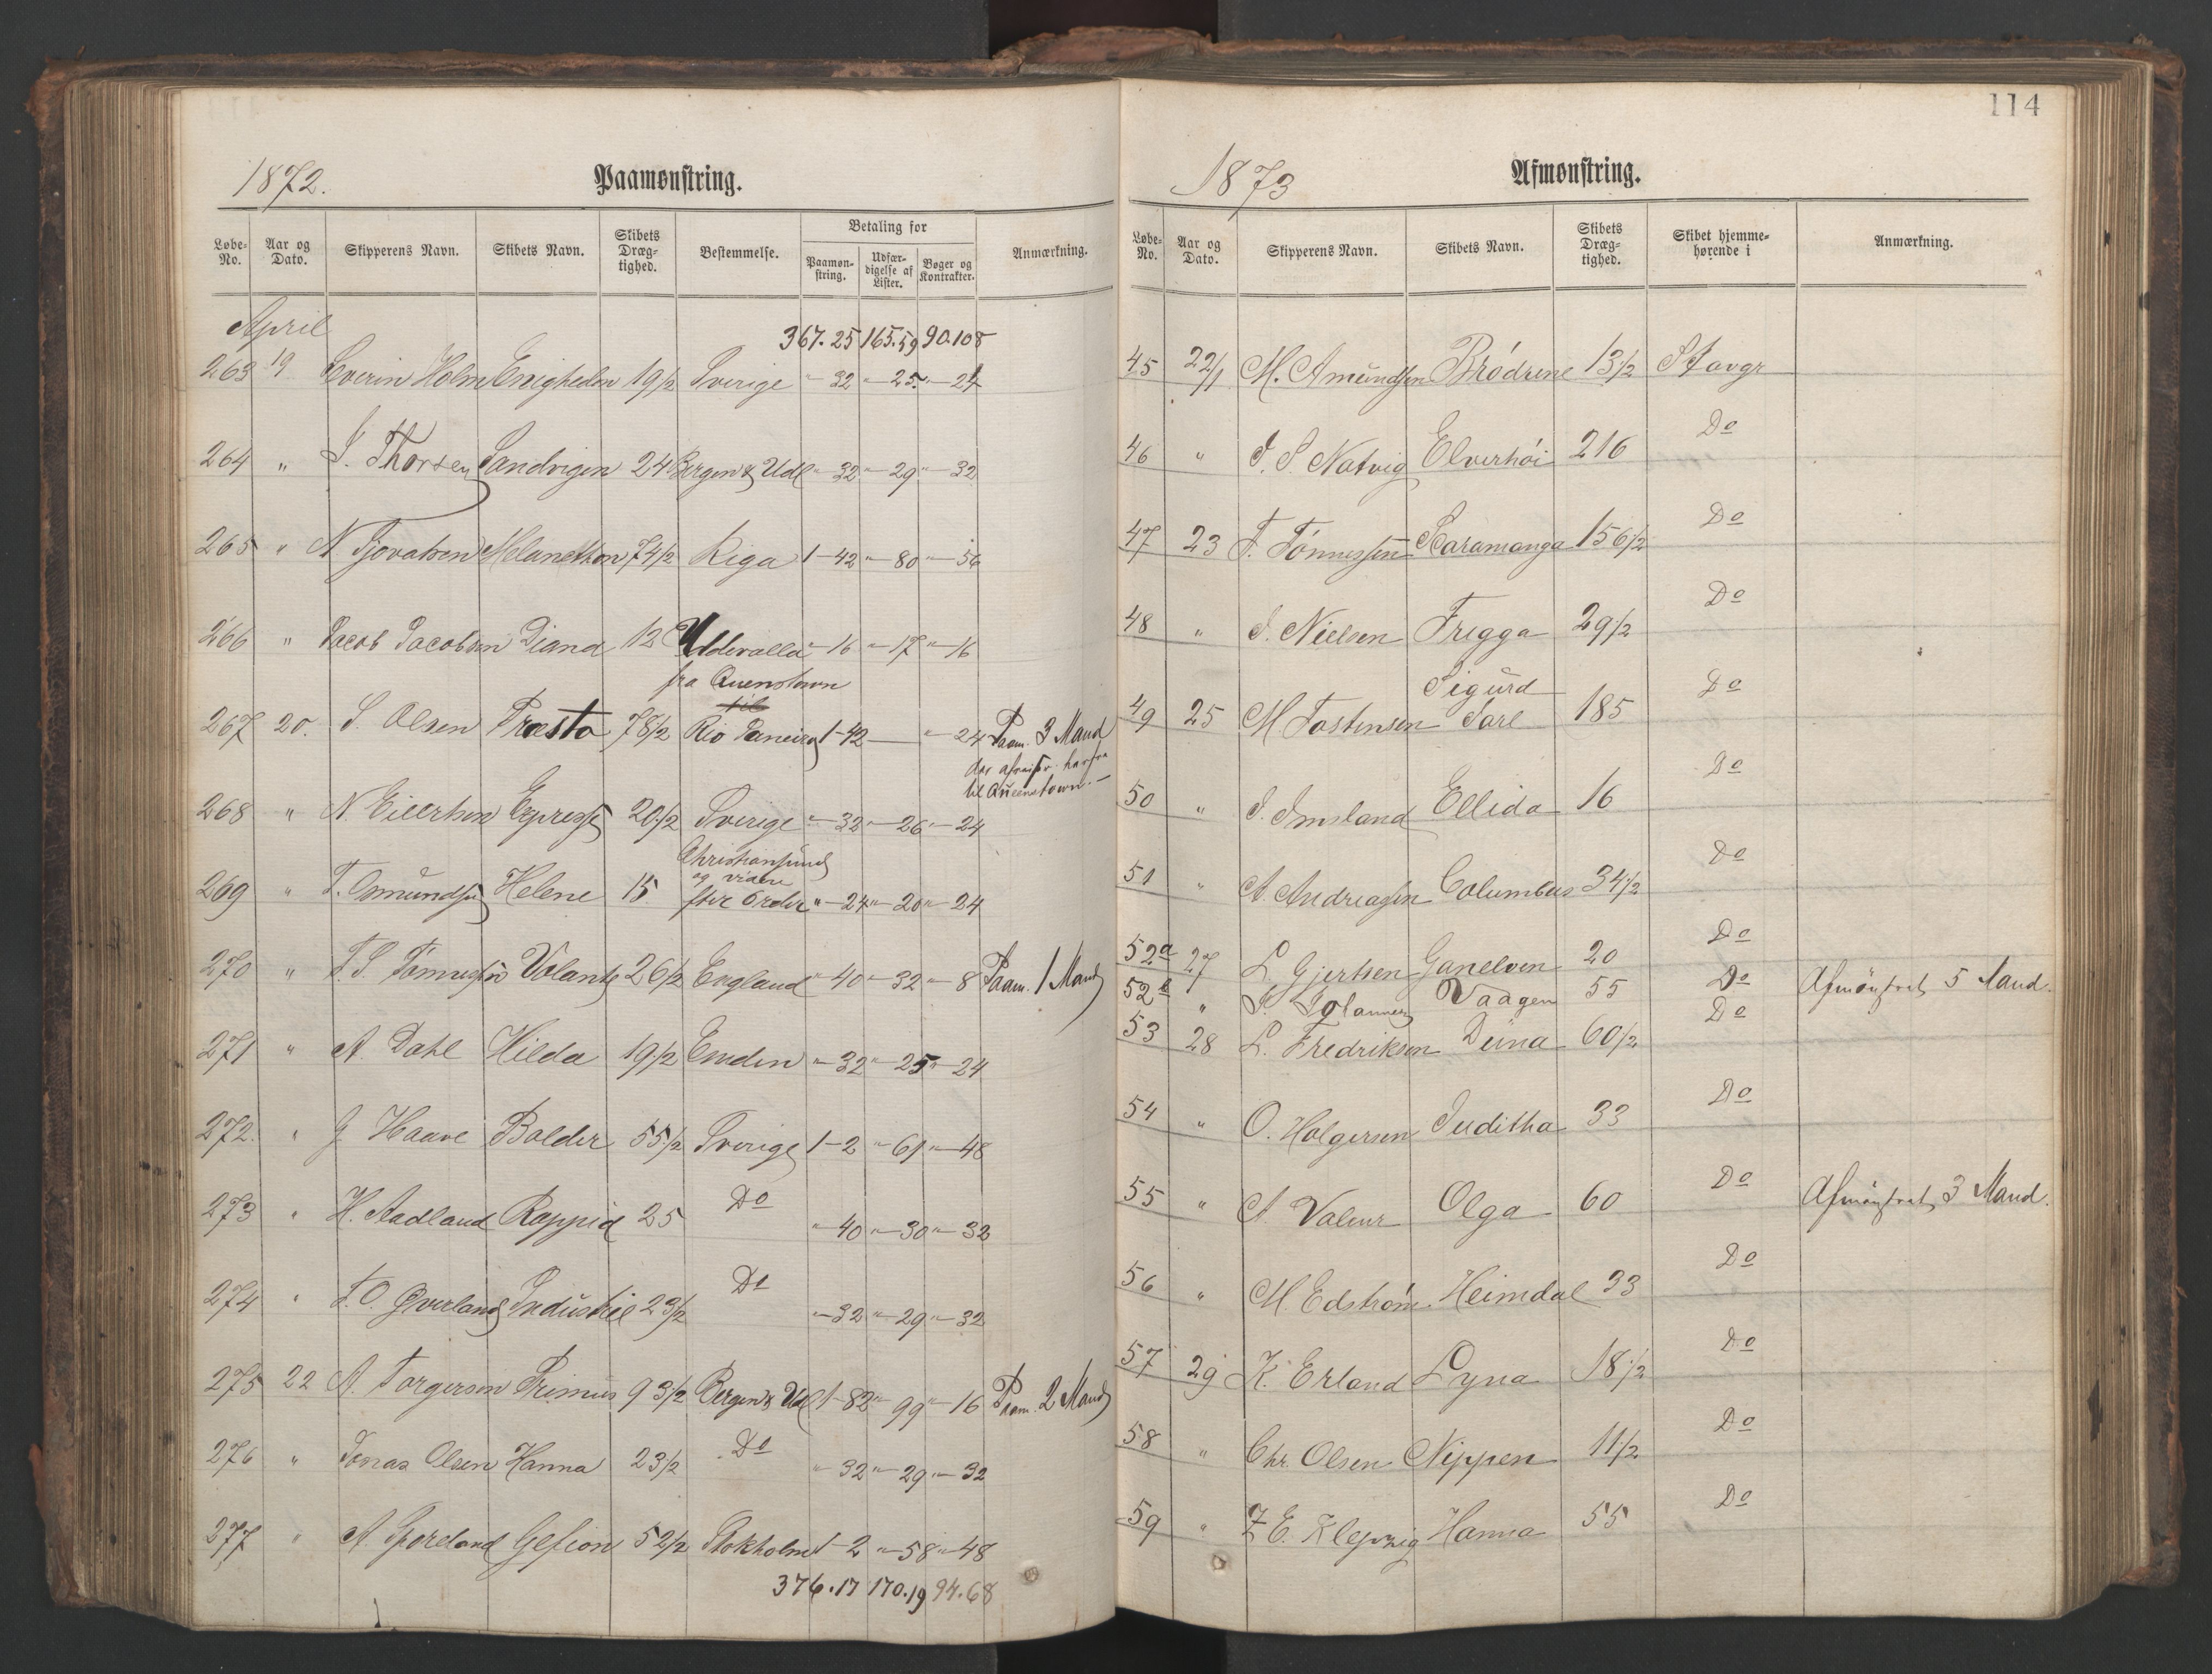 1872.
Paamønstring.
Løbe-No. Aar og Dato. Skipperens Navn. Skibets Navn. Skibets Dræg-tighed. Bestemmelse. Betaling for Paamøn-string. Udfær-digelse af Lister. Bøger og Kontrakter. Anmærkning.
April
367.25 165.59 90.108
263 19 Severin Holm Enigheden 19 1/2 Sverige " 32 " 25 " 24
264 " S. Thorsen Sandvigen 24 Bergen & Udl " 32 " 29 " 32
265 " N. Melanethon 74 1/2 Riga 1-42 " 80 " 56
266 " Jacob Jacobsen Diana 12 Uddevalla " 16 " 17 " 16
fra Queenstown
til
267 20. S. Olsen Præsto 78 1/2 Rio Janeiro 1-42 — " 24 Paam. 3 Mand
der afreiser herfra
til Queenstown.
268 " N. Eilertsen Express 20 1/2 Sverige " 32 " 26 " 24
Christiansund
og videre
269 " T. Osmundsen Helene 15 efter Ordre " 24 " 20 " 24
270 " T. S. Tønnessen Volante 26 1/2 England " 40 " 32 " 8 Paam. 1 Mand
271 " A. Dahl Hilda 19 1/2 Emden " 32 " 25 " 24
272. " J Haave Balder 55 1/2 Sverige 1-2 " 61 " 48
273 " H. Aadland Rappid 25 Do " 40 " 30 " 32
274 " T. O. Øverland Industrie 23 1/2 Do " 32 " 29 " 32
275 22 A. Torgersen Primus 93 1/2 Bergen & Udl 1-82 " 99 " 16 Paam. 2 Mand
276 " Jonas Olsen Hanna 23 1/2 Do " 32 " 29 " 32
277 " A. Sporeland Gefion 52 1/2 Stokholm 1-2 " 58 " 48
376.17 170.19 94.68
114
1873
Afmønstring.
Løbe-No. Aar og Dato. Skipperens Navn. Skibets Navn. Skibets Dræg-tighed. Skibet hjemme-hørende i Anmærkning.
45 22/1 M. Amundsen Brødrene 13 1/2 Stavgr
46 " J. S. Natvig Elverhøi 216 Do
47 23 T. Tønnessen Scaramanga 156 1/2 Do
48 " J. Nielsen Frigga 29 1/2 Do
49 25 M. Tostensen Sigurd Jarl 185 Do
50 " J. Imsland Ellida 16 Do
51 " A. Andreassen Columbus 34 1/2 Do
52a 27 L. Gjertsen Ganelven 20 Do
52b " Vaagen 55 Do Afmønstret 5 Mand.
53 28 L. Fredriksen Duna 60 1/2 Do
54 " O. Holgersen Juditha 33 Do
55 " A Valeur Olga 60 Do Afmønstret 3 Mand.
56 " M. Edstrøm Heimdal 33 Do
57 29 K. Erland Lyna 18 1/2 Do
58 " Chr. Olsen Nippen 11 1/2 Do
59 " Z E. Klepzig Hanna 55 Do